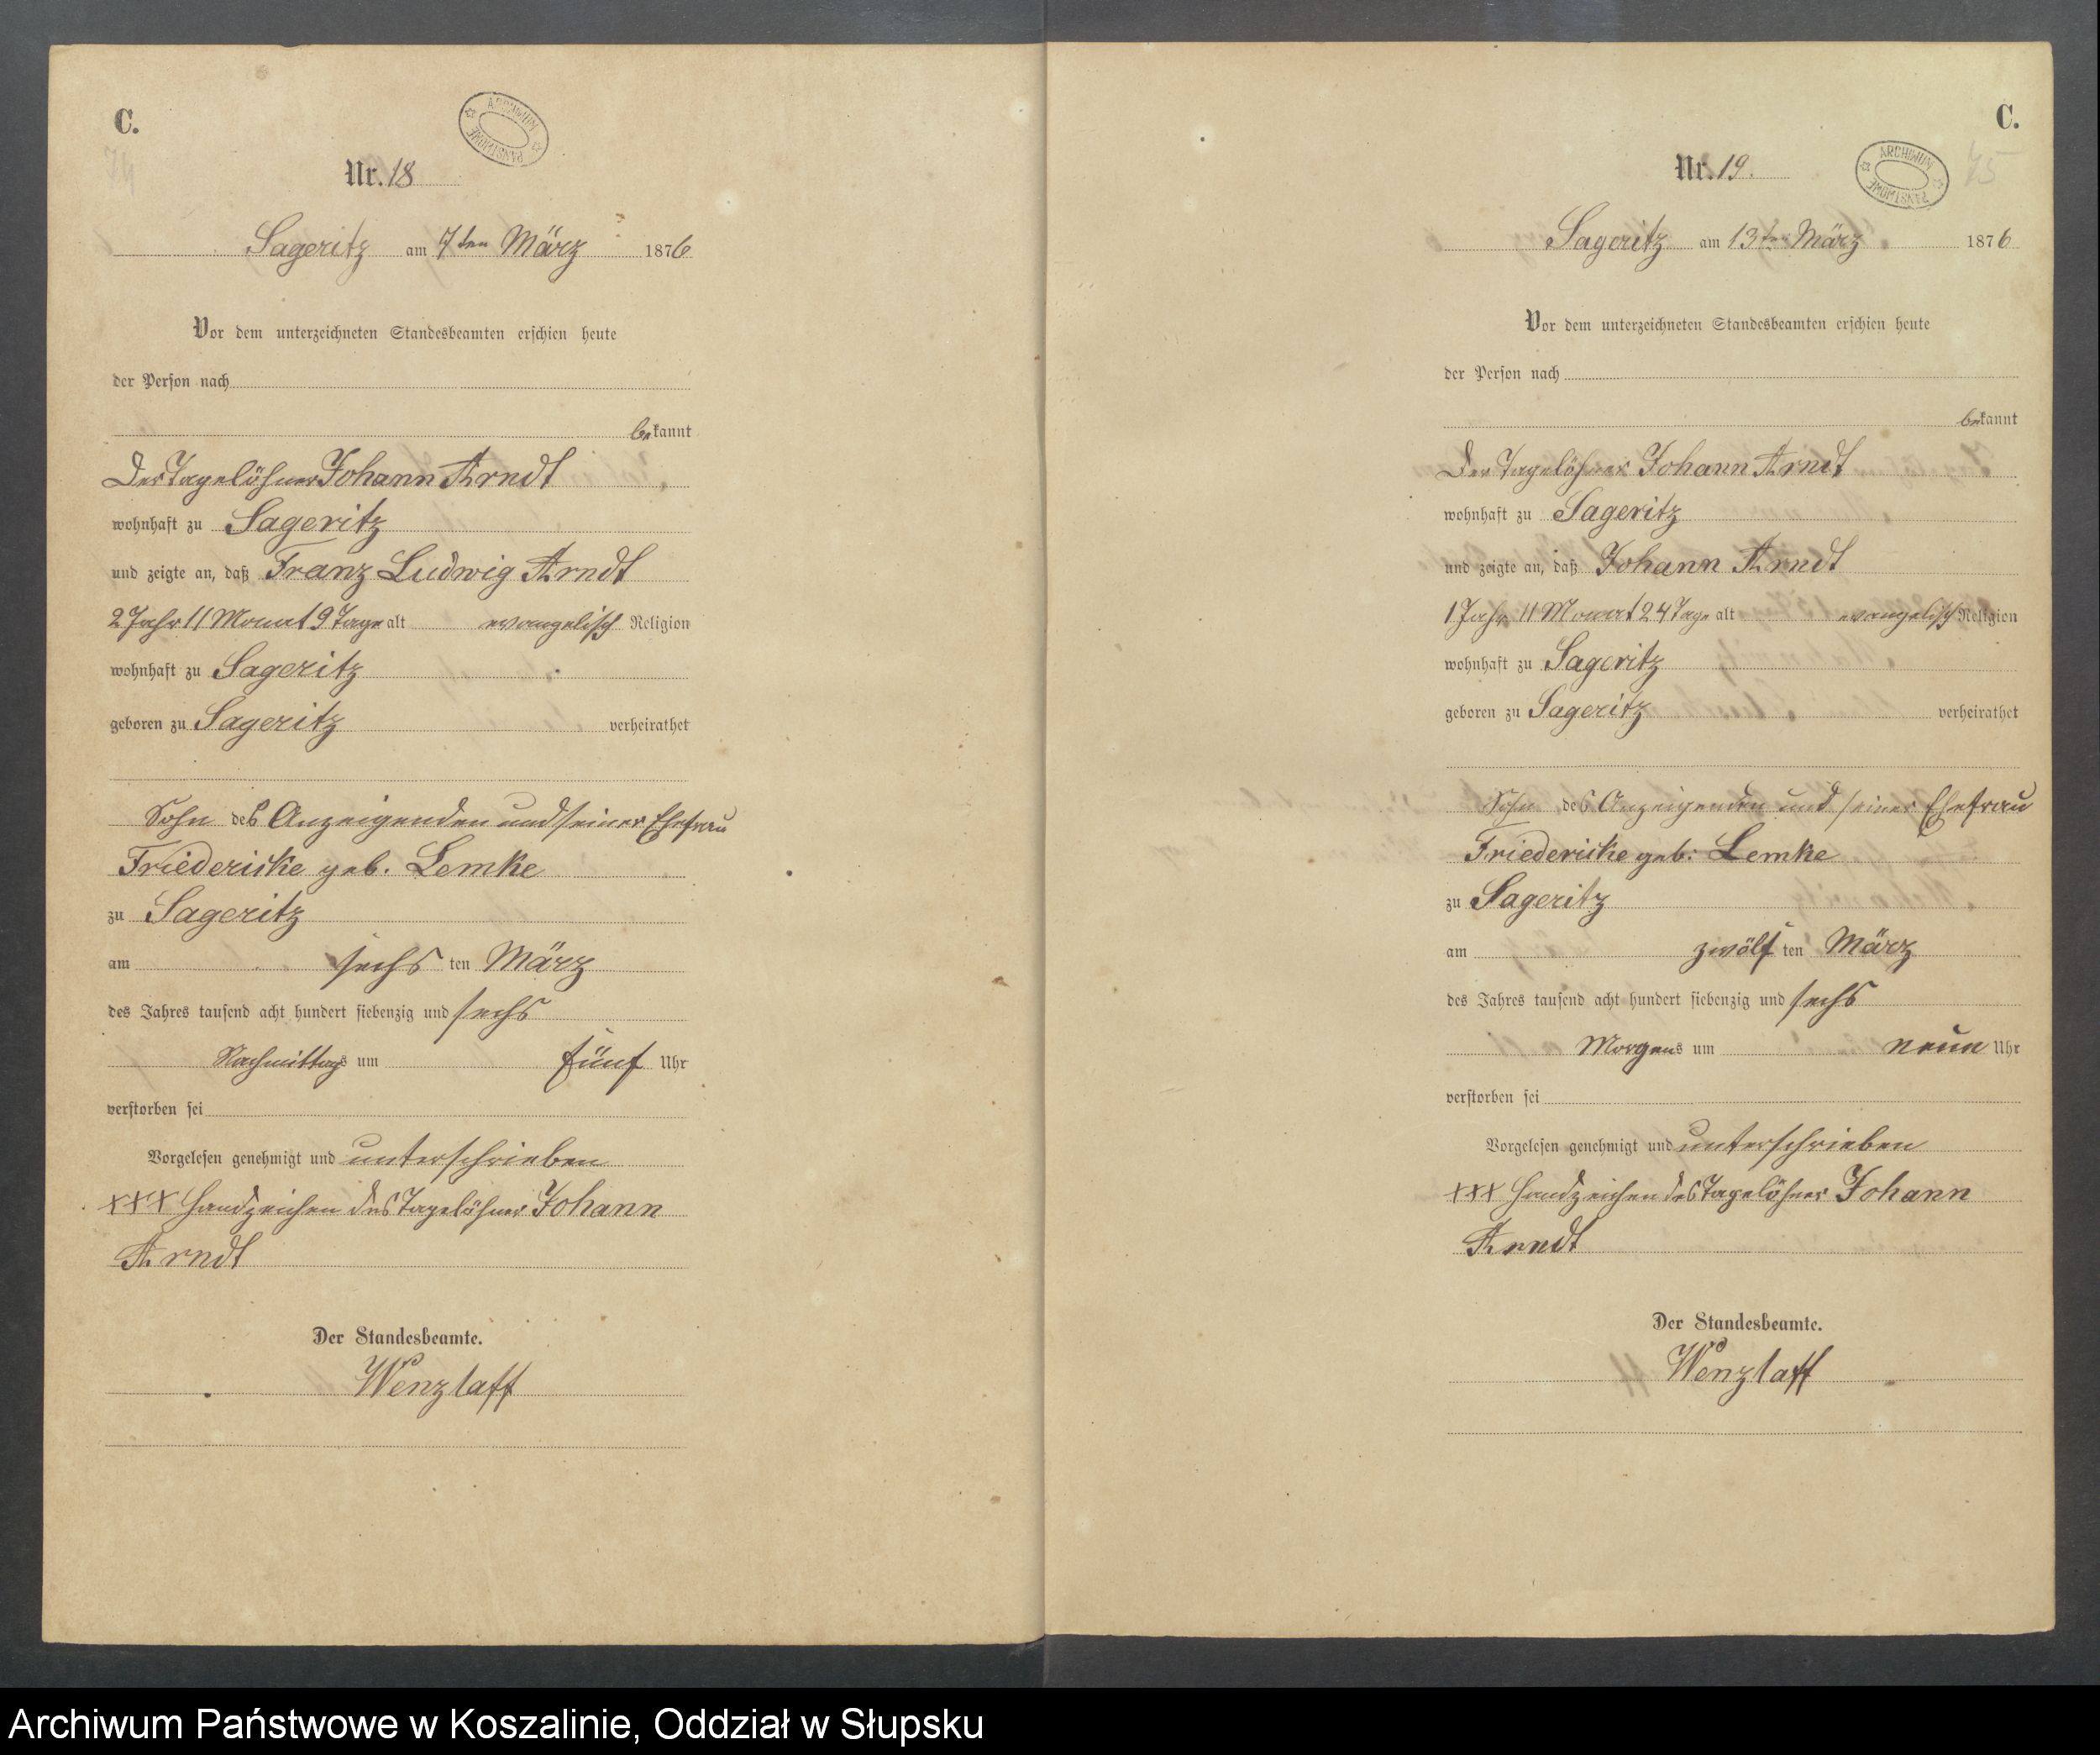 C.
ARCHIWUM PAŃSTWOWE
74
Nr. 18
Sageritz am 7ten März 1876
Vor dem unterzeichneten Standesbeamten erschien heute
der Person nach
bekannt
Der Tagelöhner Johann Arndt
wohnhaft zu Sageritz
und zeigte an, daß Franz Ludwig Arndt
2 Jahr 11 Monat 9 Tage alt evangelisch Religion
wohnhaft zu Sageritz
geboren zu Sageritz verheirathet
Sohn des Anzeigenden und seiner Ehefrau
Friedericke geb. Lemke
zu Sageritz
am sechs ten März
des Jahres tausend acht hundert siebenzig und sechs
Nachmittags um fünf Uhr
verstorben sei
Vorgelesen genehmigt und unterschrieben
XXX Handzeichen des Tagelöhner Johann
Arndt
Der Standesbeamte.
Wenzlaff
C.
ARCHIWUM PAŃSTWOWE
75
Nr. 19.
Sageritz am 13ten März 1876
Vor dem unterzeichneten Standesbeamten erschien heute
der Person nach
bekannt
Der Tagelöhner Johann Arndt
wohnhaft zu Sageritz
und zeigte an, daß Johann Arndt
1 Jahr 11 Monat 24 Tage alt evangelisch Religion
wohnhaft zu Sageritz
geboren zu Sageritz verheirathet
Sohn des Anzeigenden und seiner Ehefrau
Friedericke geb: Lemke
zu Sageritz
am zwölf ten März
des Jahres tausend acht hundert siebenzig und sechs
Morgens um neun Uhr
verstorben sei
Vorgelesen genehmigt und unterschrieben
XXX Handzeichen des Tagelöhner Johann
Arndt
Der Standesbeamte.
Wenzlaff
Archiwum Państwowe w Koszalinie, Oddział w Słupsku